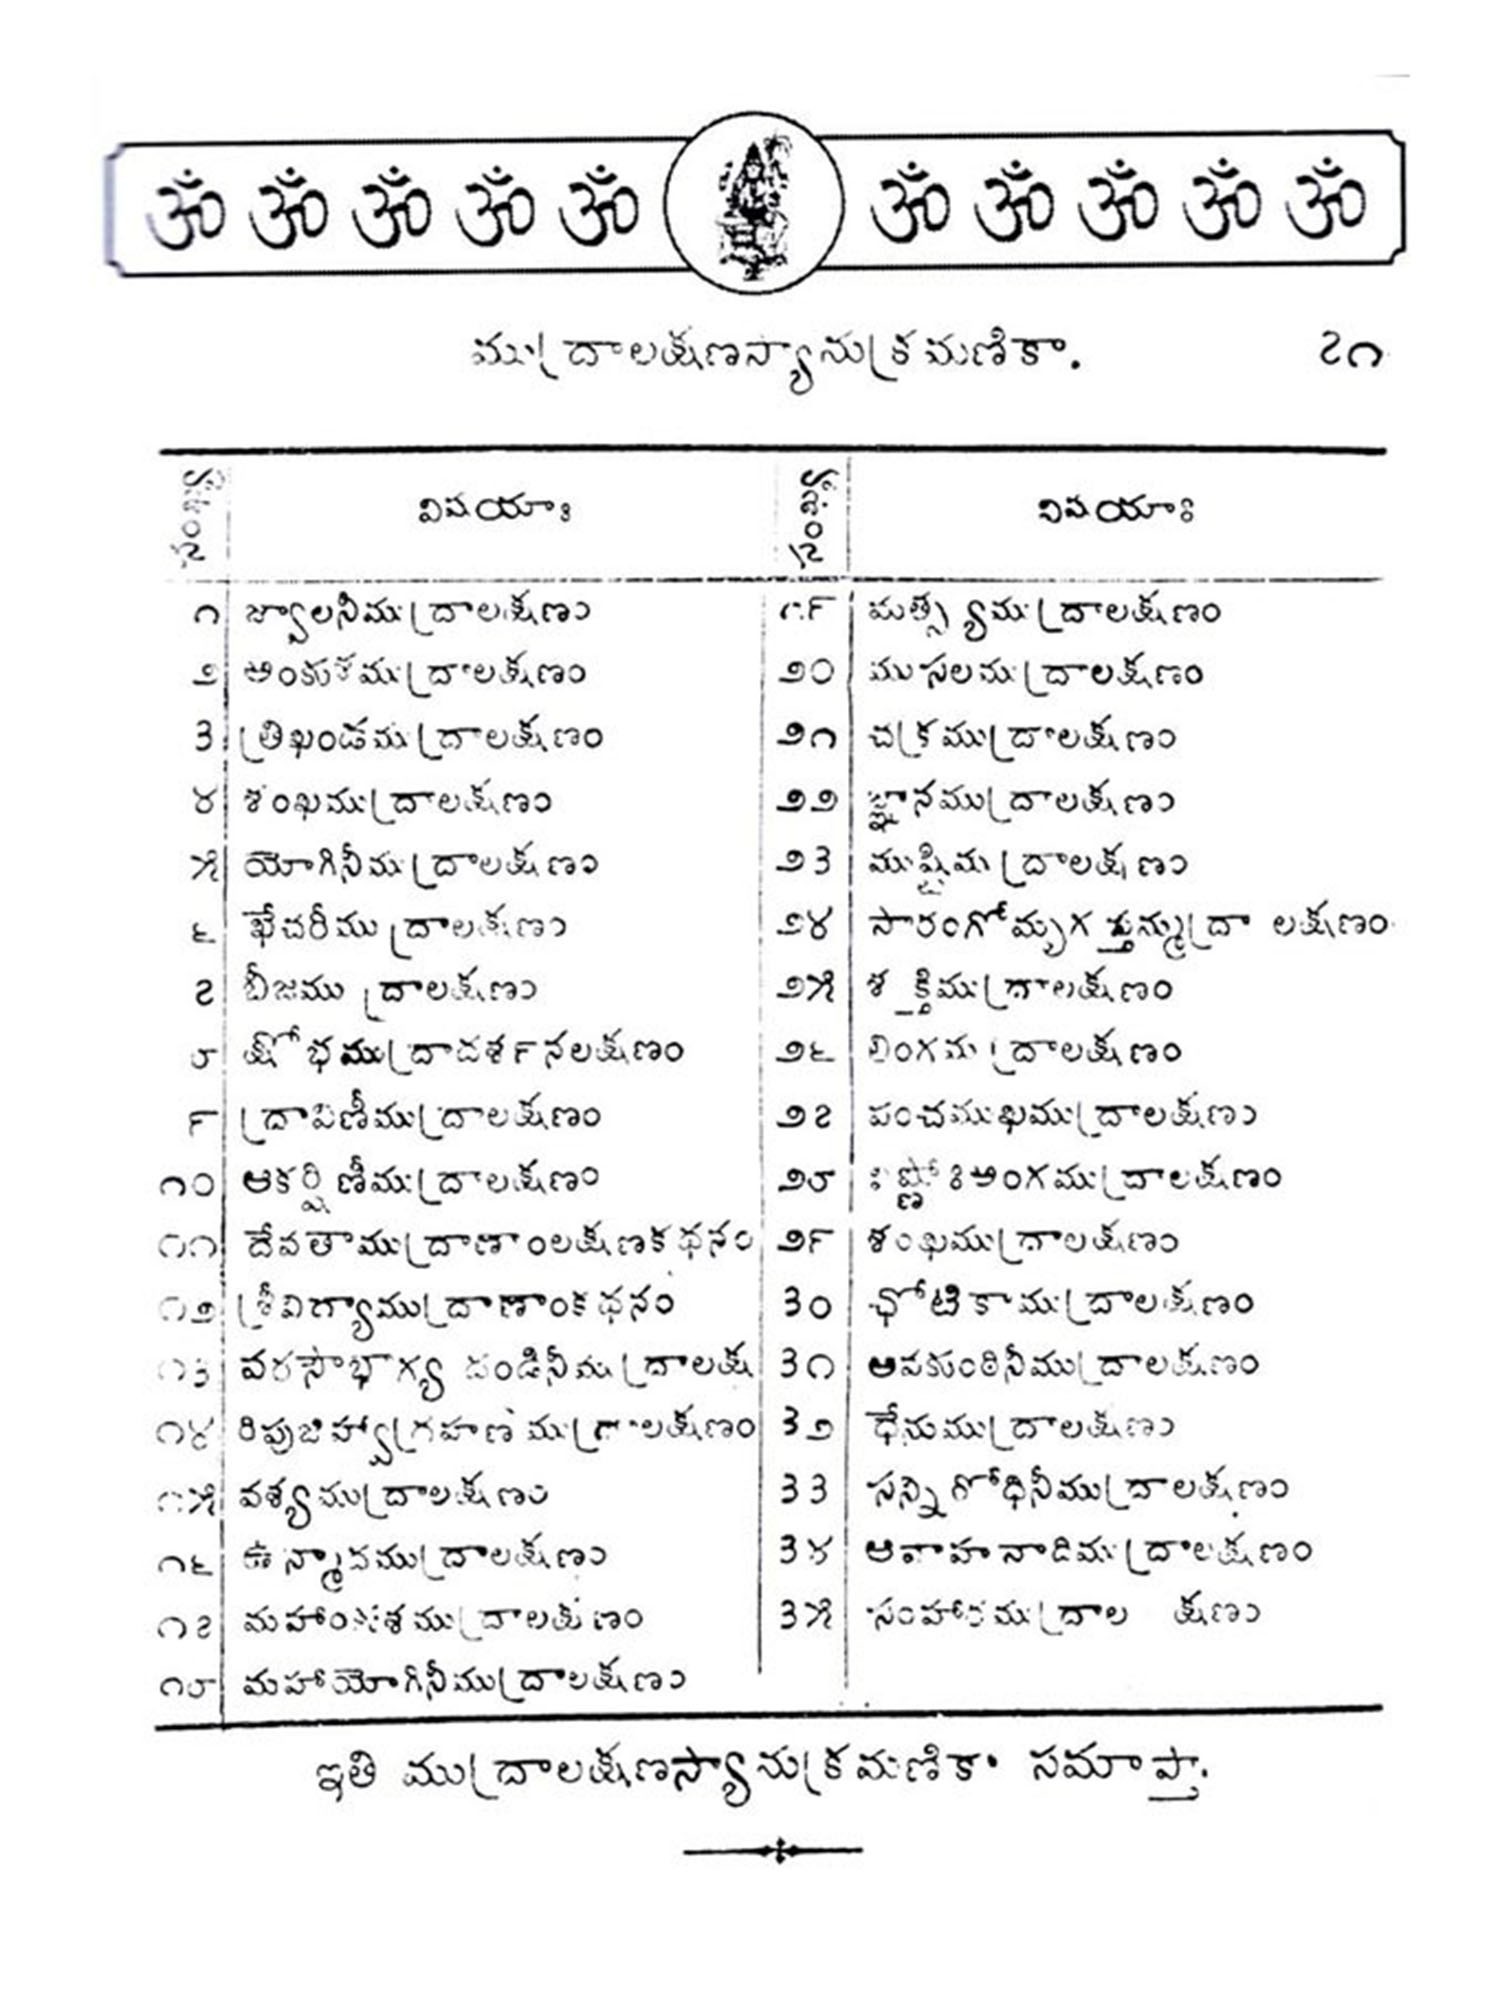 ॐ ॐ ॐ ॐ ॐ ॐ ॐ ॐ ॐ ॐ
ముద్రాలక్షణస్యానుక్రమణికా. ౭౧
సంఖ్య విషయాః
౧ జ్వాలనీముద్రాలక్షణం
౨ అంకుశముద్రాలక్షణం
౩ త్రిఖండముద్రాలక్షణం
౪ శంఖముద్రాలక్షణం
౫ యోగినీముద్రాలక్షణం
౬ ఖేచరీముద్రాలక్షణం
౭ బీజముద్రాలక్షణం
౮ క్షోభముద్రాదర్శనలక్షణం
౯ ద్రావిణీముద్రాలక్షణం
౧౦ ఆకర్షిణీముద్రాలక్షణం
౧౧ దేవతాముద్రాణాంలక్షణకథనం
౧౨ శ్రీవిద్యాముద్రాణాంకథనం
౧౩ వరసౌభాగ్య దండినీముద్రాలక్ష
౧౪ రిపుజిహ్వాగ్రహణ ముద్రాలక్షణం
౧౫ వశ్యముద్రాలక్షణం
౧౬ ఉన్మాదముద్రాలక్షణం
౧౭ మహాంకుశముద్రాలక్షణం
౧౮ మహాయోగినీముద్రాలక్షణం
సంఖ్య విషయాః
౧౯ మత్స్యముద్రాలక్షణం
౨౦ ముసలముద్రాలక్షణం
౨౧ చక్రముద్రాలక్షణం
౨౨ జ్ఞానముద్రాలక్షణం
౨౩ ముష్టిముద్రాలక్షణం
౨౪ సారంగోమృగ స్తన్ముద్రా లక్షణం
౨౫ శక్తిముద్రాలక్షణం
౨౬ లింగముద్రాలక్షణం
౨౭ పంచముఖముద్రాలక్షణం
౨౮ అంగముద్రాలక్షణం
౨౯ శంఖముద్రాలక్షణం
౩౦ ఛోటికాముద్రాలక్షణం
౩౧ అవకుంఠినీముద్రాలక్షణం
౩౨ ధేనుముద్రాలక్షణం
౩౩ సన్నిరోధినీముద్రాలక్షణం
౩౪ ఆవాహనాదిముద్రాలక్షణం
౩౫ సంహారముద్రాల క్షణం
ఇతి ముద్రాలక్షణస్యానుక్రమణికా సమాప్తా.